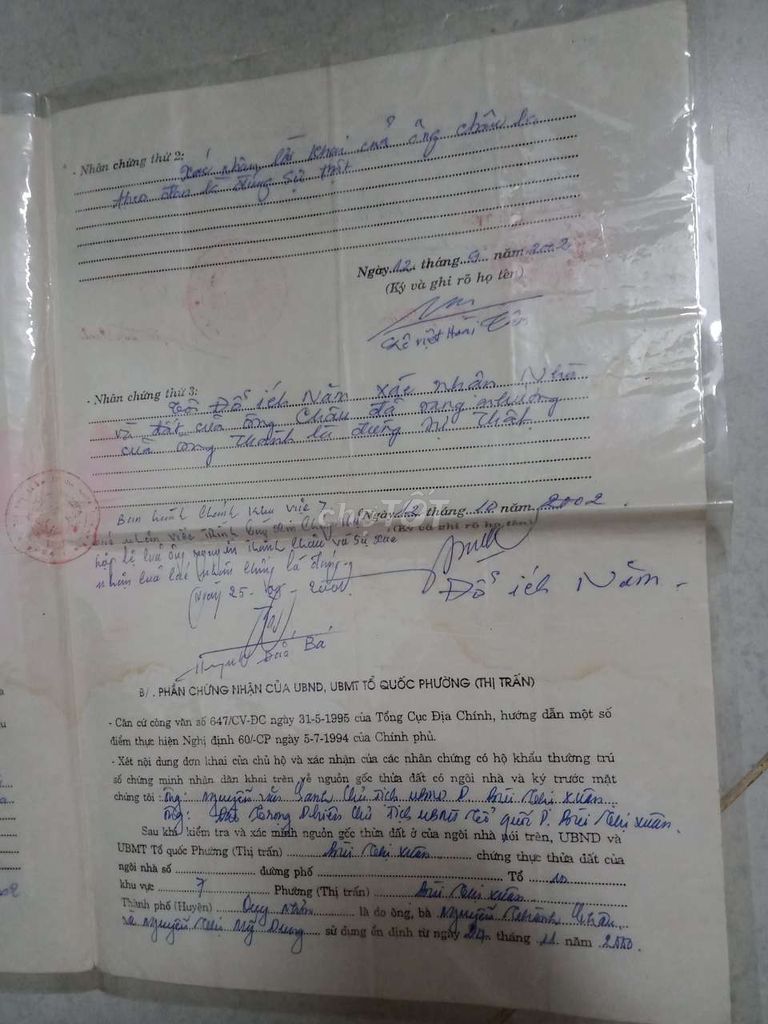 - Nhân chứng thứ 2:
Xác nhận lời khai của ông Châu là
theo đơn là đúng sự thật
Ngày 12 tháng 9 năm 2002
(Ký và ghi rõ họ tên)
Lê Viết Hoài
- Nhân chứng thứ 3:
Tôi Đỗ ích Năm xác nhận Nhà
và đất của ông Châu đã sang nhượng
của ông Thành là đúng sự thật
Ban hành chánh khu vực 7
chợTỐT
Ngày 12 tháng 10 năm 2002
(Ký và ghi rõ họ tên)
hợp lệ của ông nguyễn thành Châu và sự xác
nhận của các nhân chứng là đúng
Ngày 25-
Đỗ ích Năm
Huỳnh Bá
B/. PHẦN CHỨNG NHẬN CỦA UBND, UBMT TỔ QUỐC PHƯỜNG (THỊ TRẤN)
- Căn cứ công văn số 647/CV-ĐC ngày 31-5-1995 của Tổng Cục Địa Chính, hướng dẫn một số
điểm thực hiện Nghị định 60/-CP ngày 5-7-1994 của Chính phủ.
- Xét nội dung đơn khai của chủ hộ và xác nhận của các nhân chứng có hộ khẩu thường trú
số chứng minh nhân dân khai trên về nguồn gốc thửa đất có ngôi nhà và ký trước mặt
chúng tôi ông: Nguyễn Văn Chủ Tịch UBND P. Bùi Thị Xuân
ông: Trọng Chủ Tịch UBMT Tổ quốc P. Bùi Thị Xuân.
Sau khi kiểm tra và xác minh nguồn gốc thửa đất ở của ngôi nhà nói trên, UBND và
UBMT Tổ quốc Phường (Thị trấn) Bùi Thị Xuân chứng thực thửa đất của
ngôi nhà số đường phố Tổ 10
khu vực 7 Phường (Thị trấn) Bùi Thị Xuân
Thành phố (Huyện) Quy Nhơn là do ông, bà Nguyễn Thành Châu
và Nguyễn Thị Mỹ Dung sử dụng ổn định từ ngày 24 tháng 11 năm 2000